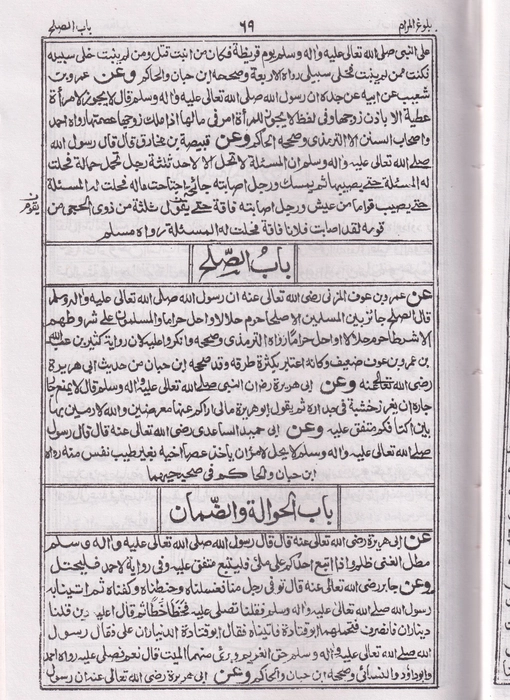 بلوغ المرام ٦٩ باب الصلح
على النبي صلى الله تعالى عليه واله وسلم يوم قريظة فكان من انبت قتل ومن لم ينبت خلى سبيله
فكنت ممن لم ينبت فخلى سبيلي رواه الاربعة وصححه ابن حبان والحاكم وعن عمرو بن
شعيب عن ابيه عن جده ان رسول الله صلى الله تعالى عليه واله وسلم قال لا يجوز لامرأة
عطية الا باذن زوجها وفي لفظ لا يجوز للمرأة امر في مالها اذا ملك زوجها عصمتها رواه احمد
واصحاب السنن الا الترمذي وصححه الحاكم وعن قبيصة بن مخارق قال قال رسول الله
صلى الله تعالى عليه واله وسلم ان المسئلة لا تحل الا لاحد ثلثة رجل تحمل حمالة فحلت
له المسئلة حتى يصيبها ثم يمسك ورجل اصابته جائحة اجتاحت ماله فحلت له المسئلة
حتى يصيب قواما من عيش ورجل اصابته فاقة حتى يقول ثلثة من ذوى الحجى من
يقوم
قومه لقد اصابت فلانا فاقة فحلت له المسئلة رواه مسلم
باب الصلح
عن عمرو بن عوف المزني رضى الله تعالى عنه ان رسول الله صلى الله تعالى عليه واله وسلم
قال الصلح جائز بين المسلمين الا صلحا حرم حلالا او احل حراما والمسلمون على شروطهم
الا شرطا حرم حلالا او احل حراما رواه الترمذي وصححه وانكروا عليه لان رواية كثير بن عبد الله
بن عمرو بن عوف ضعيف وكانه اعتبر بكثرة طرقه وقد صححه ابن حبان من حديث ابى هريرة
رضى الله تعالى عنه وعن ابى هريرة رض ان النبي صلى الله تعالى عليه واله وسلم قال لا يمنع جار
جاره ان يغرز خشبة في جداره ثم يقول ابو هريرة مالي اراكم عنها معرضين والله لارمين بها
بين اكتافكم متفق عليه وعن ابى حميد الساعدى رضى الله تعالى عنه قال قال رسول
الله صلى الله تعالى عليه واله وسلم لا يحل لامرئ ان ياخذ عصا اخيه بغير طيب نفس منه رواه
ابن حبان والحاكم في صحيحيهما
باب الحوالة والضمان
عن ابى هريرة رضى الله تعالى عنه قال قال رسول الله صلى الله تعالى عليه واله وسلم
مطل الغنى ظلم واذا اتبع احدكم على ملئ فليتبع متفق عليه وفى رواية لاحمد فليحتل
وعن جابر رضى الله تعالى عنه قال توفى رجل منا فغسلناه وحنطناه وكفناه ثم اتينا به
رسول الله صلى الله عليه واله وسلم فقلنا تصلى عليه فخطا خطا ثم قال اعليه دين قلنا
ديناران فانصرف فتحملهما ابو قتادة فاتيناه فقال ابو قتادة الديناران على فقال رسول
الله صلى الله تعالى عليه واله وسلم حق الغريم وبرئ منهما الميت قال نعم فصلى عليه رواه احمد
وابو داود والنسائى وصححه ابن حبان والحاكم وعن ابى هريرة رضى الله تعالى عنه ان رسول